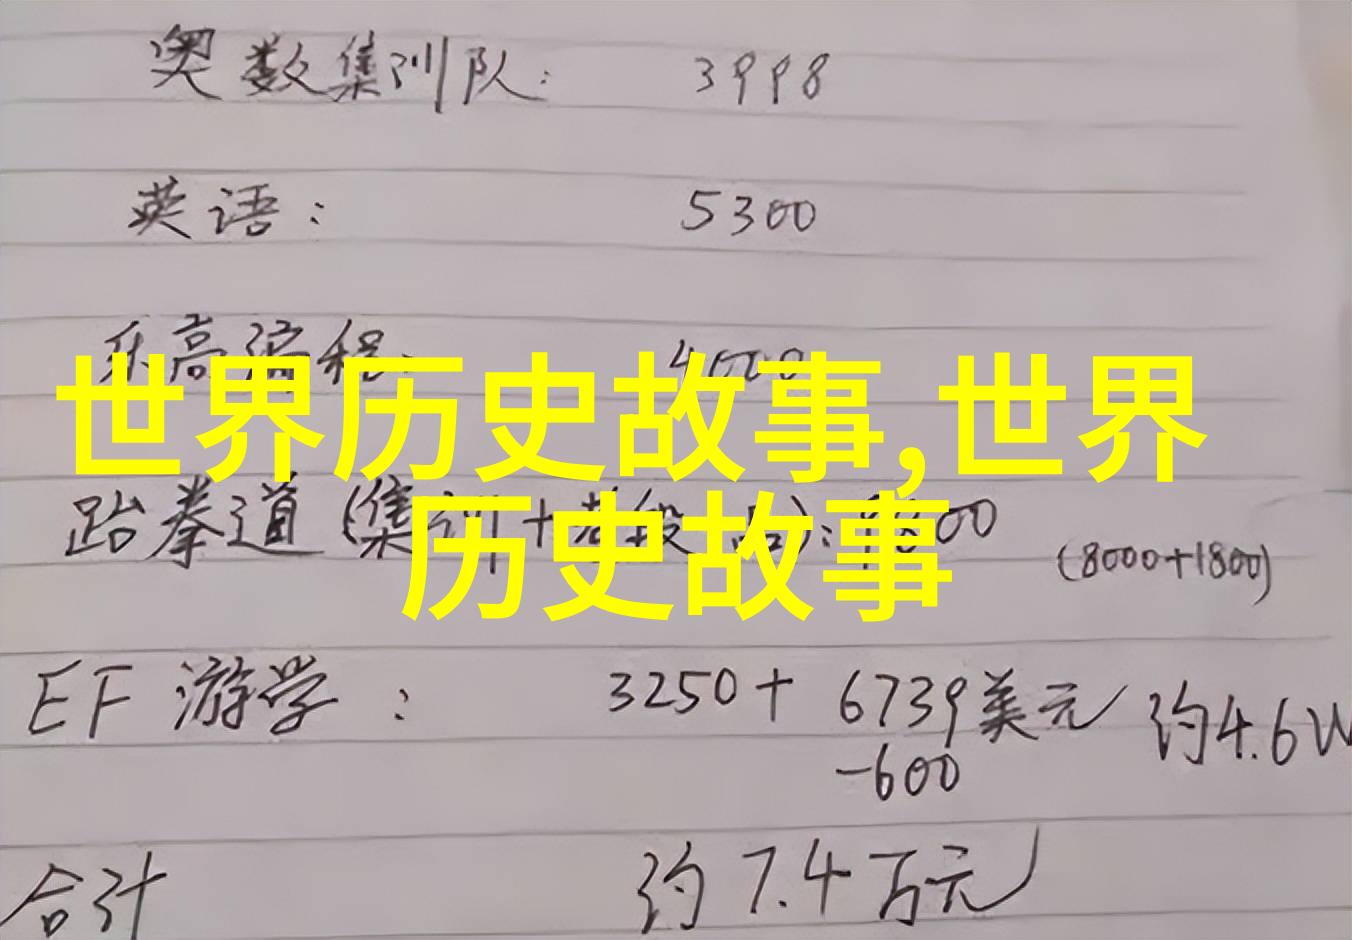 奥数集训队: 3998
英语: 5300
乐高编程: 4000
世界历史故事,世界
历史故事
跆拳道(集训+考段 ): 9800
(8000+1800)
EF 游学: 3250+ 6739美元 约4.6W
-600
合计 约7.4万元